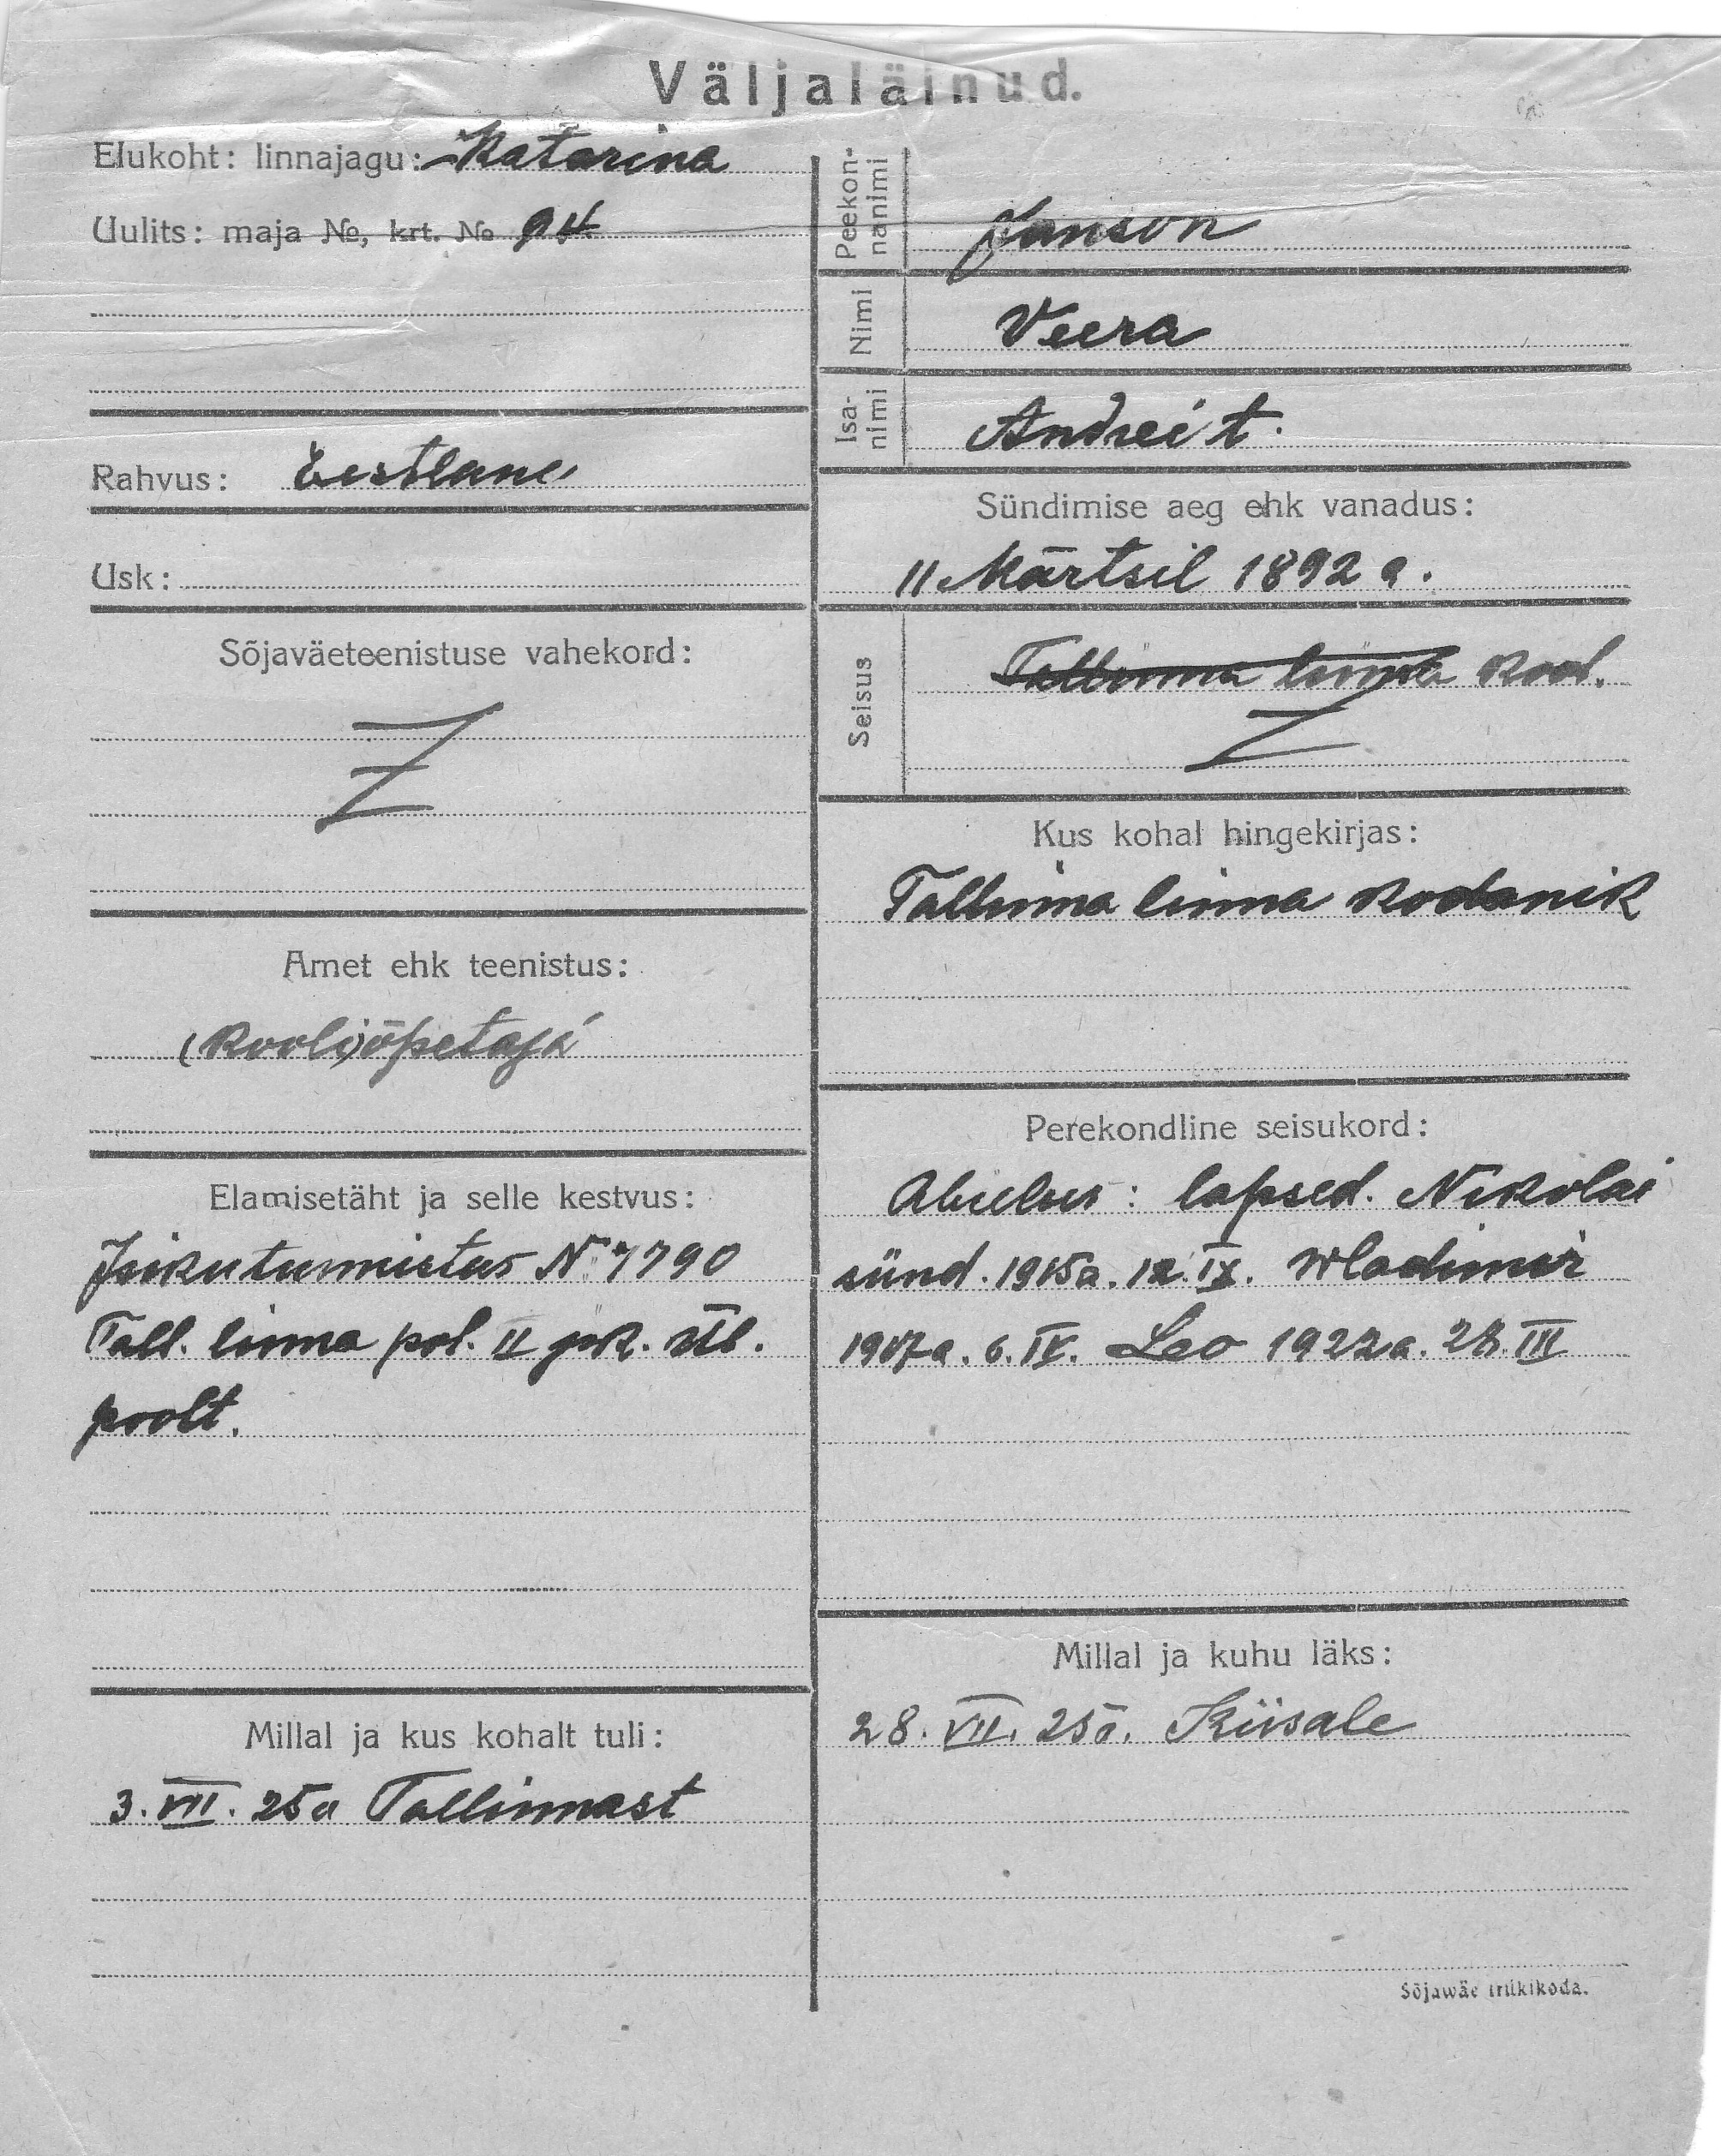 Väljaläinud.
Elukoht: linnajagu: Katarina
Uulits: maja №, krt. № 94
Rahvus: Eestlane
Usk:
Sõjaväeteenistuse vahekord:
Amet ehk teenistus:
(kooli)õpetaja
Elamisetäht ja selle kestvus:
Isikutunnistus N: 7790
Tall. linna pol. II jsk. ül.
poolt.
Millal ja kus kohalt tuli:
3. VII. 25a Tallinnast
Peekon-
naanimi
Janson
Nimi
Veera
Isa-
nimi
Andrei t.
Sündimise aeg ehk vanadus:
11 Märtsil 1892 a.
Seisus
Tallinna linna kod.
Kus kohal hingekirjas:
Tallinna linna kodanik
Perekondline seisukord:
Abielus: lapsed. Nikolai
sünd. 1915a. 12. IX. Wladimir
1917a. 6. IV. Leo 1922a. 28. III
Millal ja kuhu läks:
28. VII. 25a. Kiisale
Sõjawäe trükikoda.